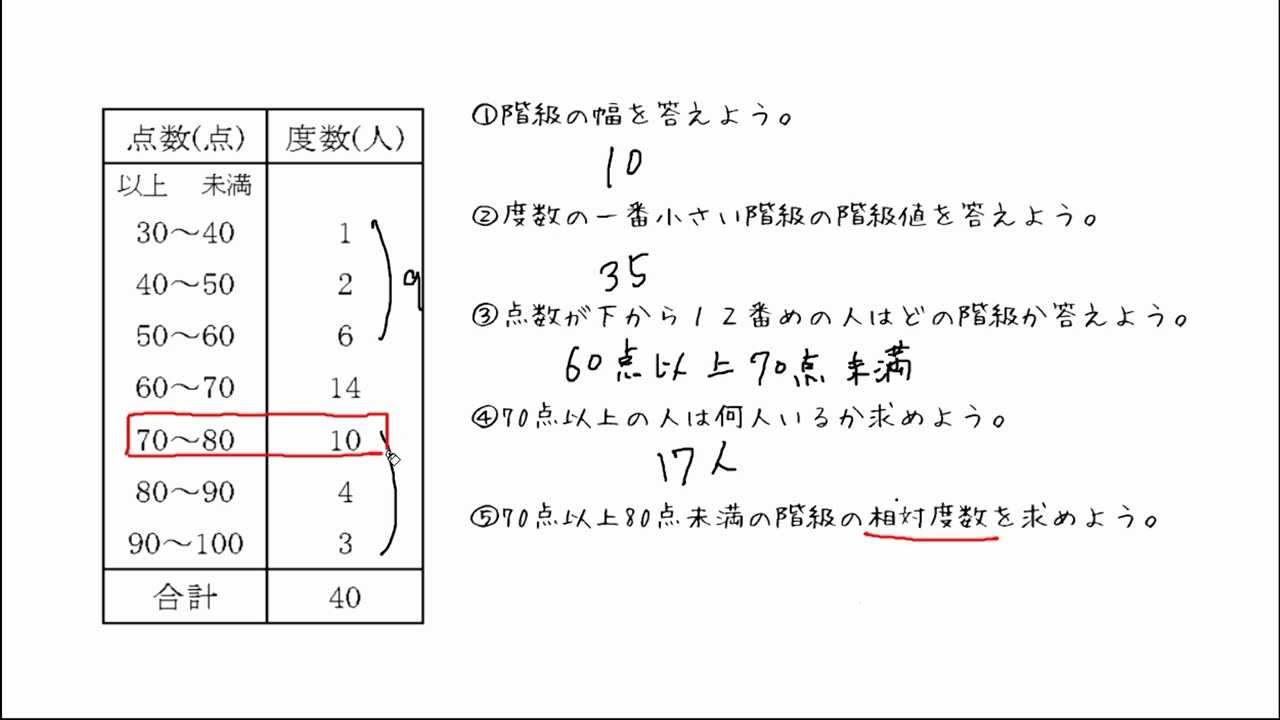 点数(点) 度数(人)
以上 未満
30〜40 1
40〜50 2
50〜60 6
9
60〜70 14
70〜80 10
80〜90 4
90〜100 3
合計 40
①階級の幅を答えよう。
10
②度数の一番小さい階級の階級値を答えよう。
35
③点数が下から12番めの人はどの階級か答えよう。
60点以上70点未満
④70点以上の人は何人いるか求めよう。
17人
⑤70点以上80点未満の階級の相対度数を求めよう。